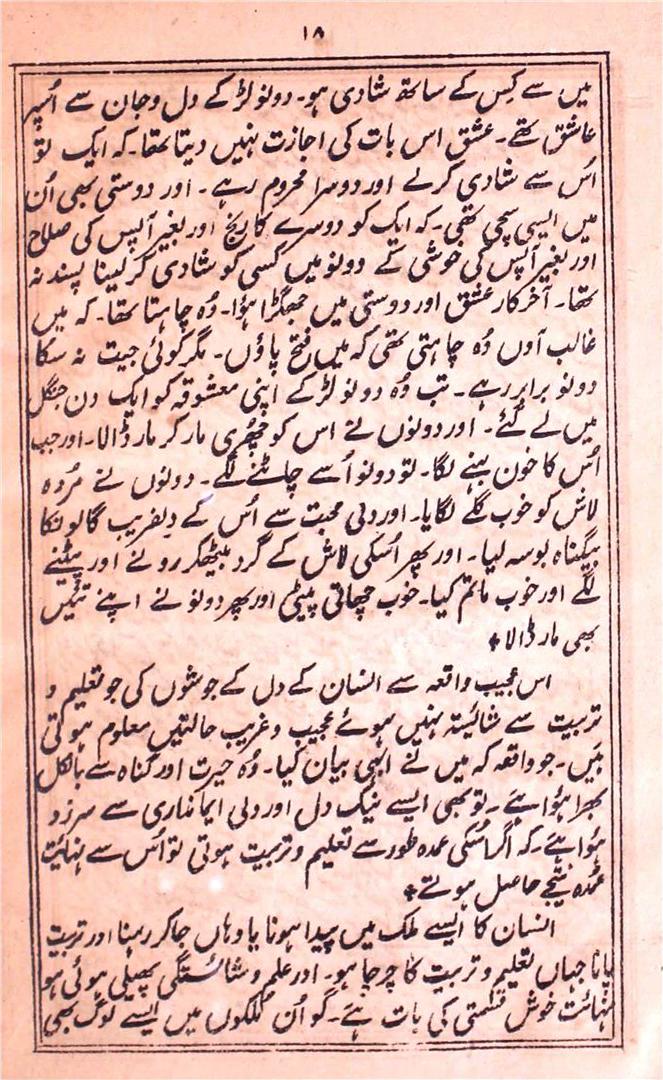 ۱۸
میں سے کس کے ساتھ شادی ہو۔ دونو لڑکے دل وجان سے اُسپر
عاشق تھے۔ عشق اس بات کی اجازت نہیں دیتا تھا۔ کہ ایک تو
اُس سے شادی کرلے اور دوسرا محروم رہے۔ اور دوستی بھی اُن
میں ایسی سچی تھی۔ کہ ایک کو دوسرے کا رنج اور بغیر آپس کی صلاح
اور بغیر آپس کی خوشی کے دونو میں کسی کو شادی کرلینا پسند نہ
تھا۔ آخرکار عشق اور دوستی میں جھگڑا ہؤا۔ وُہ چاہتا تھا۔ کہ میں
غالب آوں وُہ چاہتی تھی کہ میں فتح پاؤں۔ مگر کوئی جیت نہ سکا
دونو برابر رہے۔ تب وُہ دونو لڑکے اپنی معشوقہ کو ایک دن جنگل
میں لے گئے۔ اور دونوں نے اس کو چھُری مار کر مار ڈالا۔ اور جب
اُس کا خون بہنے لگا۔ تو دونو اُسے چاٹنے لگے۔ دونوں نے مُردہ
لاش کو خوب گلے لگایا۔ اور دلی محبت سے اُس کے دلفریب گالونکا
بیگناہ بوسہ لیا۔ اور پھر اُسکی لاش کے گرد بیٹھکر رونے اور پیٹنے
لگے اور خوب ماتم کیا۔ خوب چھاتی پیٹی اور پھر دونو نے اپنے تئیں
بھی مار ڈالا٭
اس عجیب واقعہ سے انسان کے دل کے جوشوں کی جو تعلیم و
تربیت سے شائیستہ نہیں ہوئے عجیب وغریب حالتیں معلوم ہوتی
ہَیں۔ جو واقعہ کہ میں نے ابھی بیان کیا۔ وُہ حیرت اور گناہ سے بالکل
بھرا ہؤا ہے۔ تو بھی ایسے نیک دل اور دلی ایمانداری سے سرزد
ہؤا ہے۔ کہ اگر اُسکی عمدہ طور سے تعلیم وتربیت ہوتی تو اُس سے نہائیت
عمدہ نتیجے حاصل ہوتے٭
انسان کا ایسے ملک میں پیدا ہونا یا وہاں جاکر رہنا اور تربیت
پانا جہاں تعلیم و تربیت کا چرچا ہو۔ اور علم و شائستگی پھیلی ہوئی ہو
نہائت خوش قسمتی کی بات ہے۔ گو اُن ملکوں میں ایسے لوگ بھی